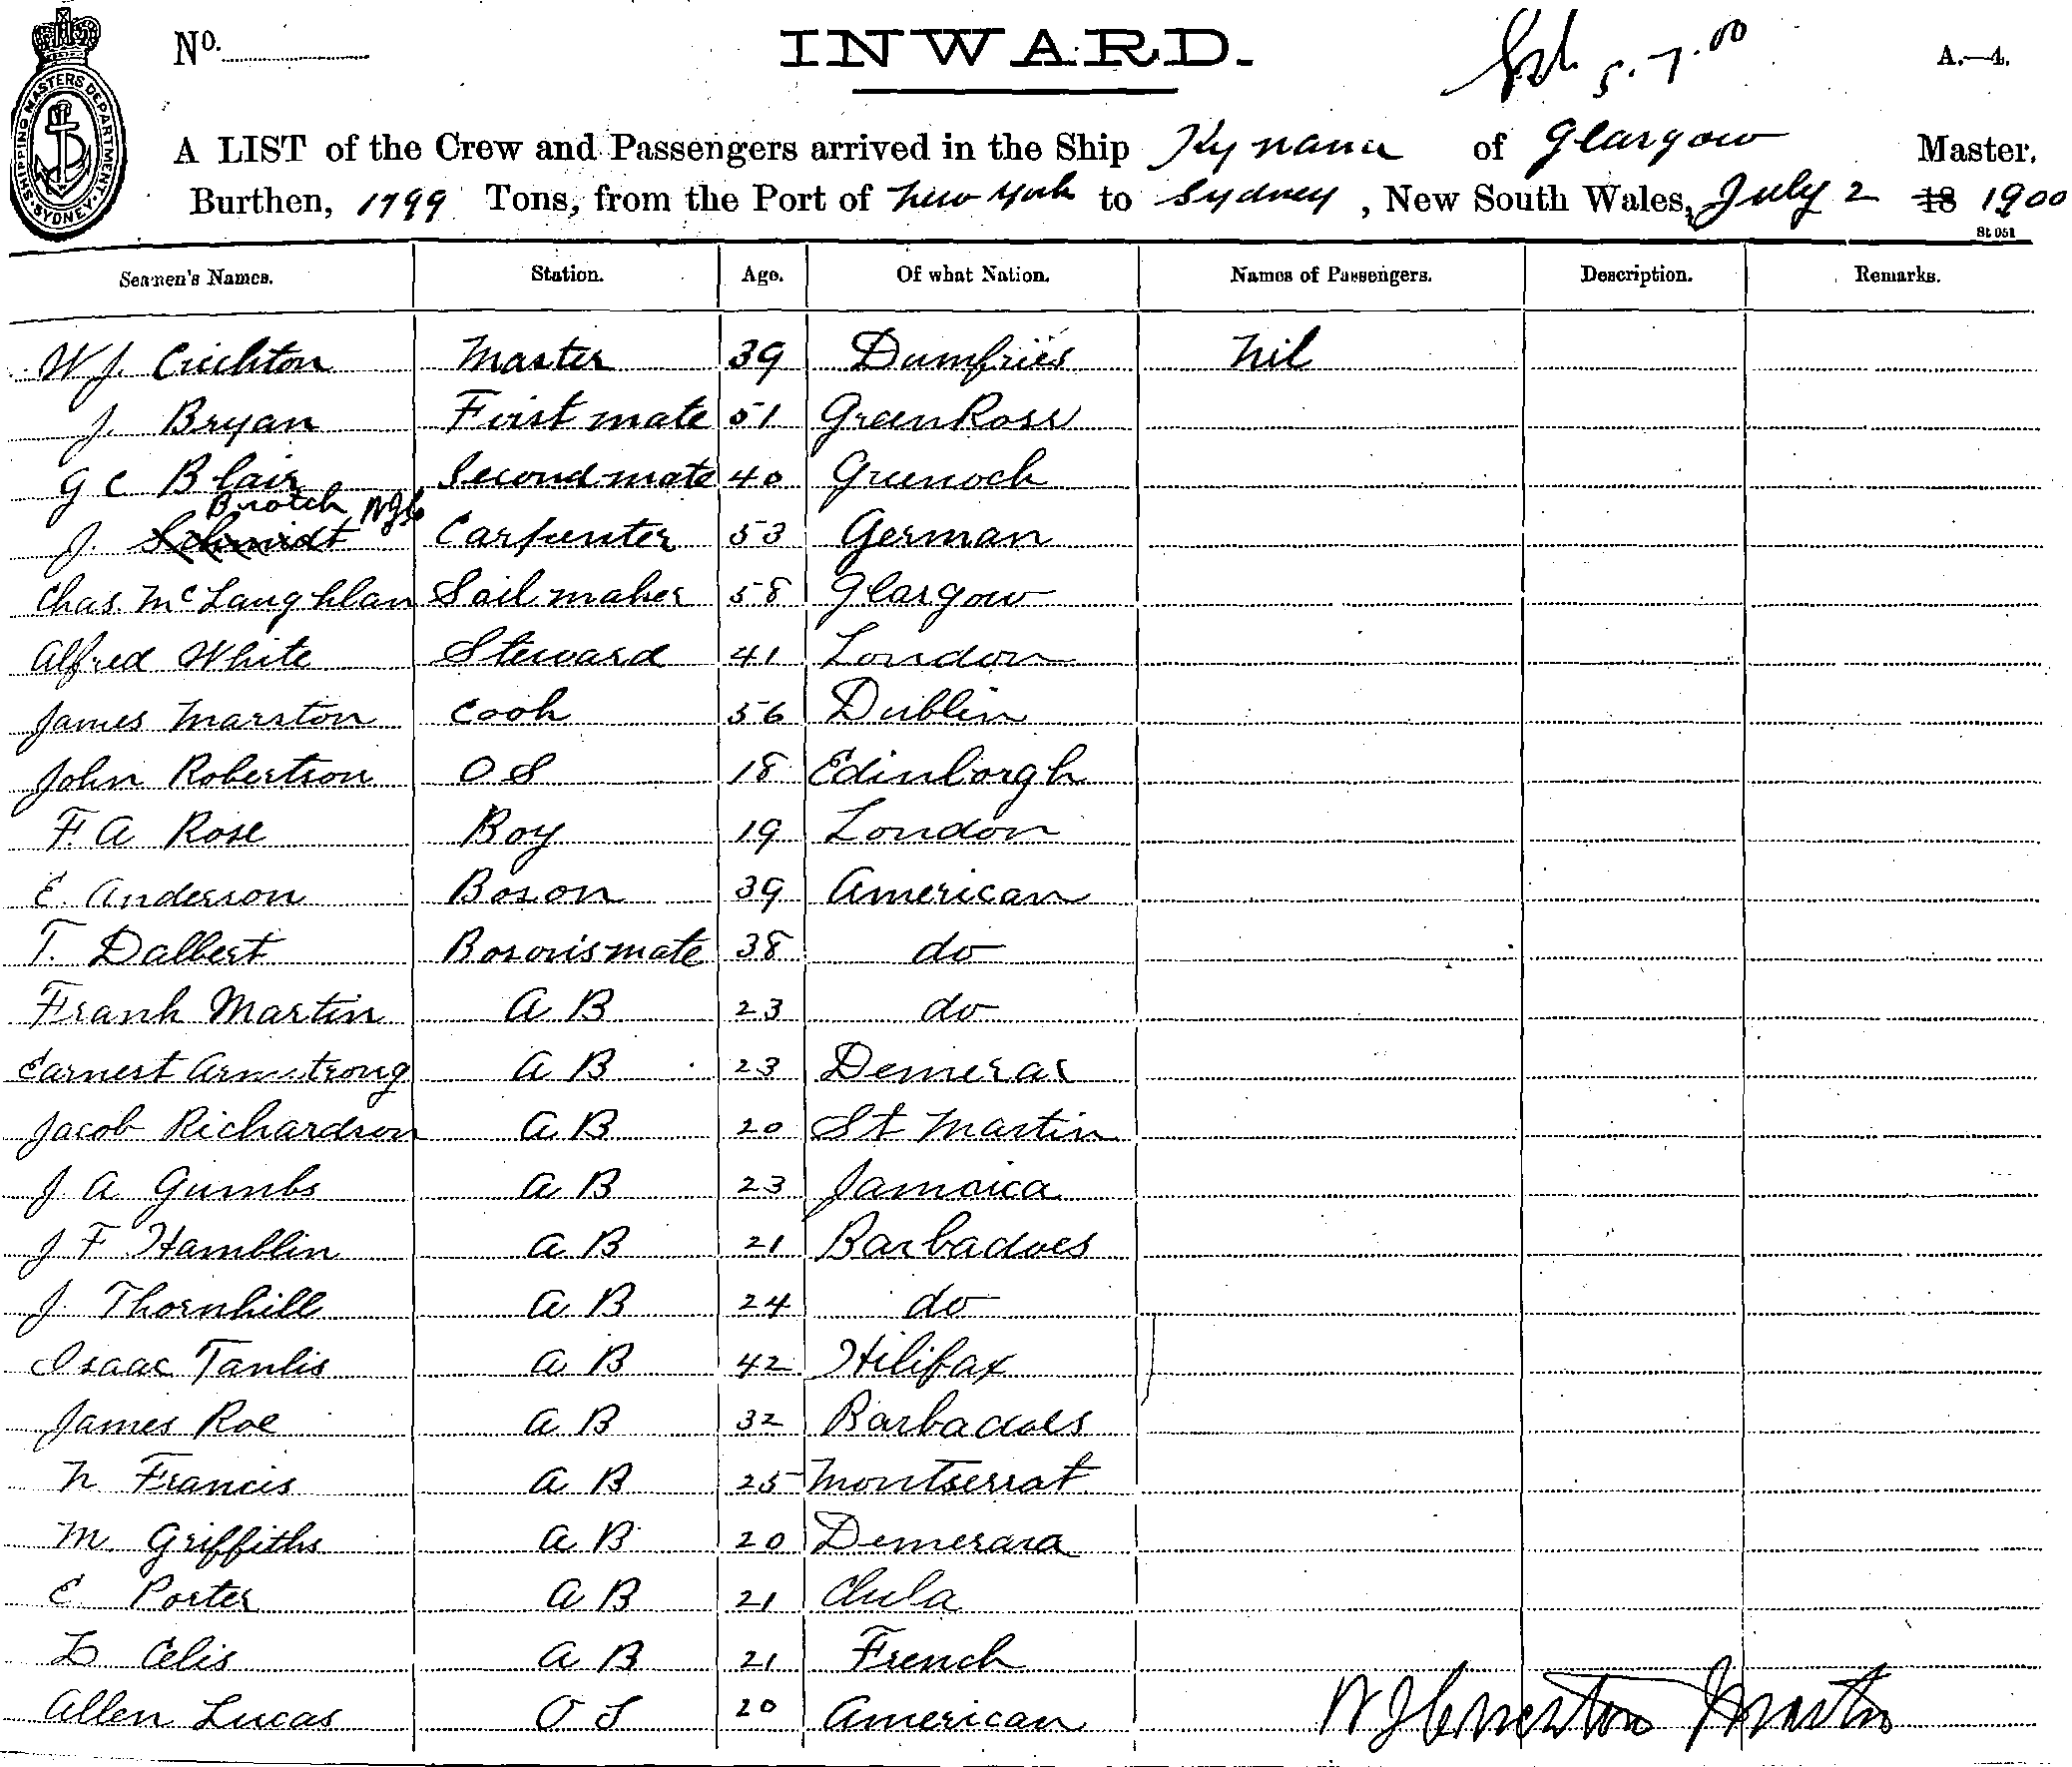 SHIPPING MASTERS DEPARTMENT. SYDNEY.
No.
INWARD.
5.7.00
A.—4.
A LIST of the Crew and Passengers arrived in the Ship of Glasgow Master,
Burthen, 1799 Tons, from the Port of New York to Sydney, New South Wales, July 2 18 1900
St 051
Seamen's Names. Station. Age. Of what Nation. Names of Passengers. Description. Remarks.
W J. Crichton Master 39 Dumfries Nil
J. Bryan First mate 51 Green Ross
G C Blair Second mate 40 Greenock
J. Schmidt Carpenter 53 German
Chas. McLaughlan Sail maker 58 Glasgow
Alfred White Steward 41 London
James Marston Cook 56 Dublin
John Robertson O S 18 Edinborgh
F. A Rose Boy 19 London
E. Anderson Boson 39 American
T. Dalbert Boson's mate 38 do
Frank Martin A B 23 do
Earnest Armstrong A B 23 Demerar
Jacob Richardson A B 20 St Martin
J A Gumbs A B 23 Jamaica
J F Hamblin A B 21 Barbadoes
J. Thornhill A B 24 do
Isaac Tanlis A B 42 Hilifax
James Roe A B 32 Barbadoes
N Francis A B 25 Montserrat
M. Griffiths A B 20 Demerara
E Porter A B 21
D Celis A B 21 French
Allen Lucas O S 20 American
Master